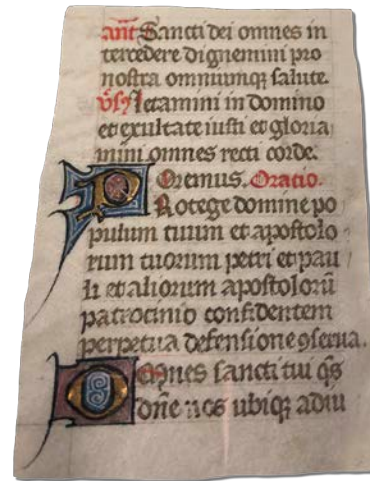 añt Sancti dei omnes in
tercedere dignemini pro
nostra omniumqꝫ salute.
v̄s Letamini in domino
et exultate iusti et gloria
mini omnes recti corde.
Oremus. Oratio.
PRotege domine po
pulum tuum et apostolo
rum tuorum petri et pau
li et aliorum apostolorū
patrocinio confidentem
perpetua defensione ꝯserua.
OMnes sancti tui q̄s
dñe nos ubiqꝫ adiu